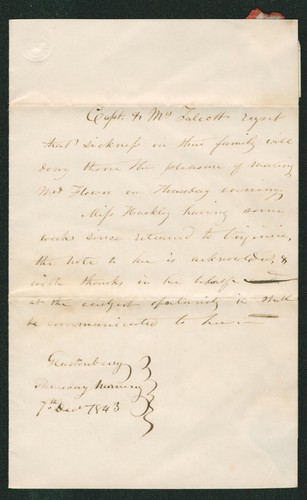 Capt. & Mrs Talcott regret
that sickness in their family will
deny them the pleasure of meeting
Mrs on Thursday evening,
Miss Hackley having some
weeks since returned to Virginia,
the note to her is acknowledged, &
with thanks in her behalf
at the earliest oportunity it shall
be communicated to her.
Glastenbury
Thursday Morning
7th Decr 1843